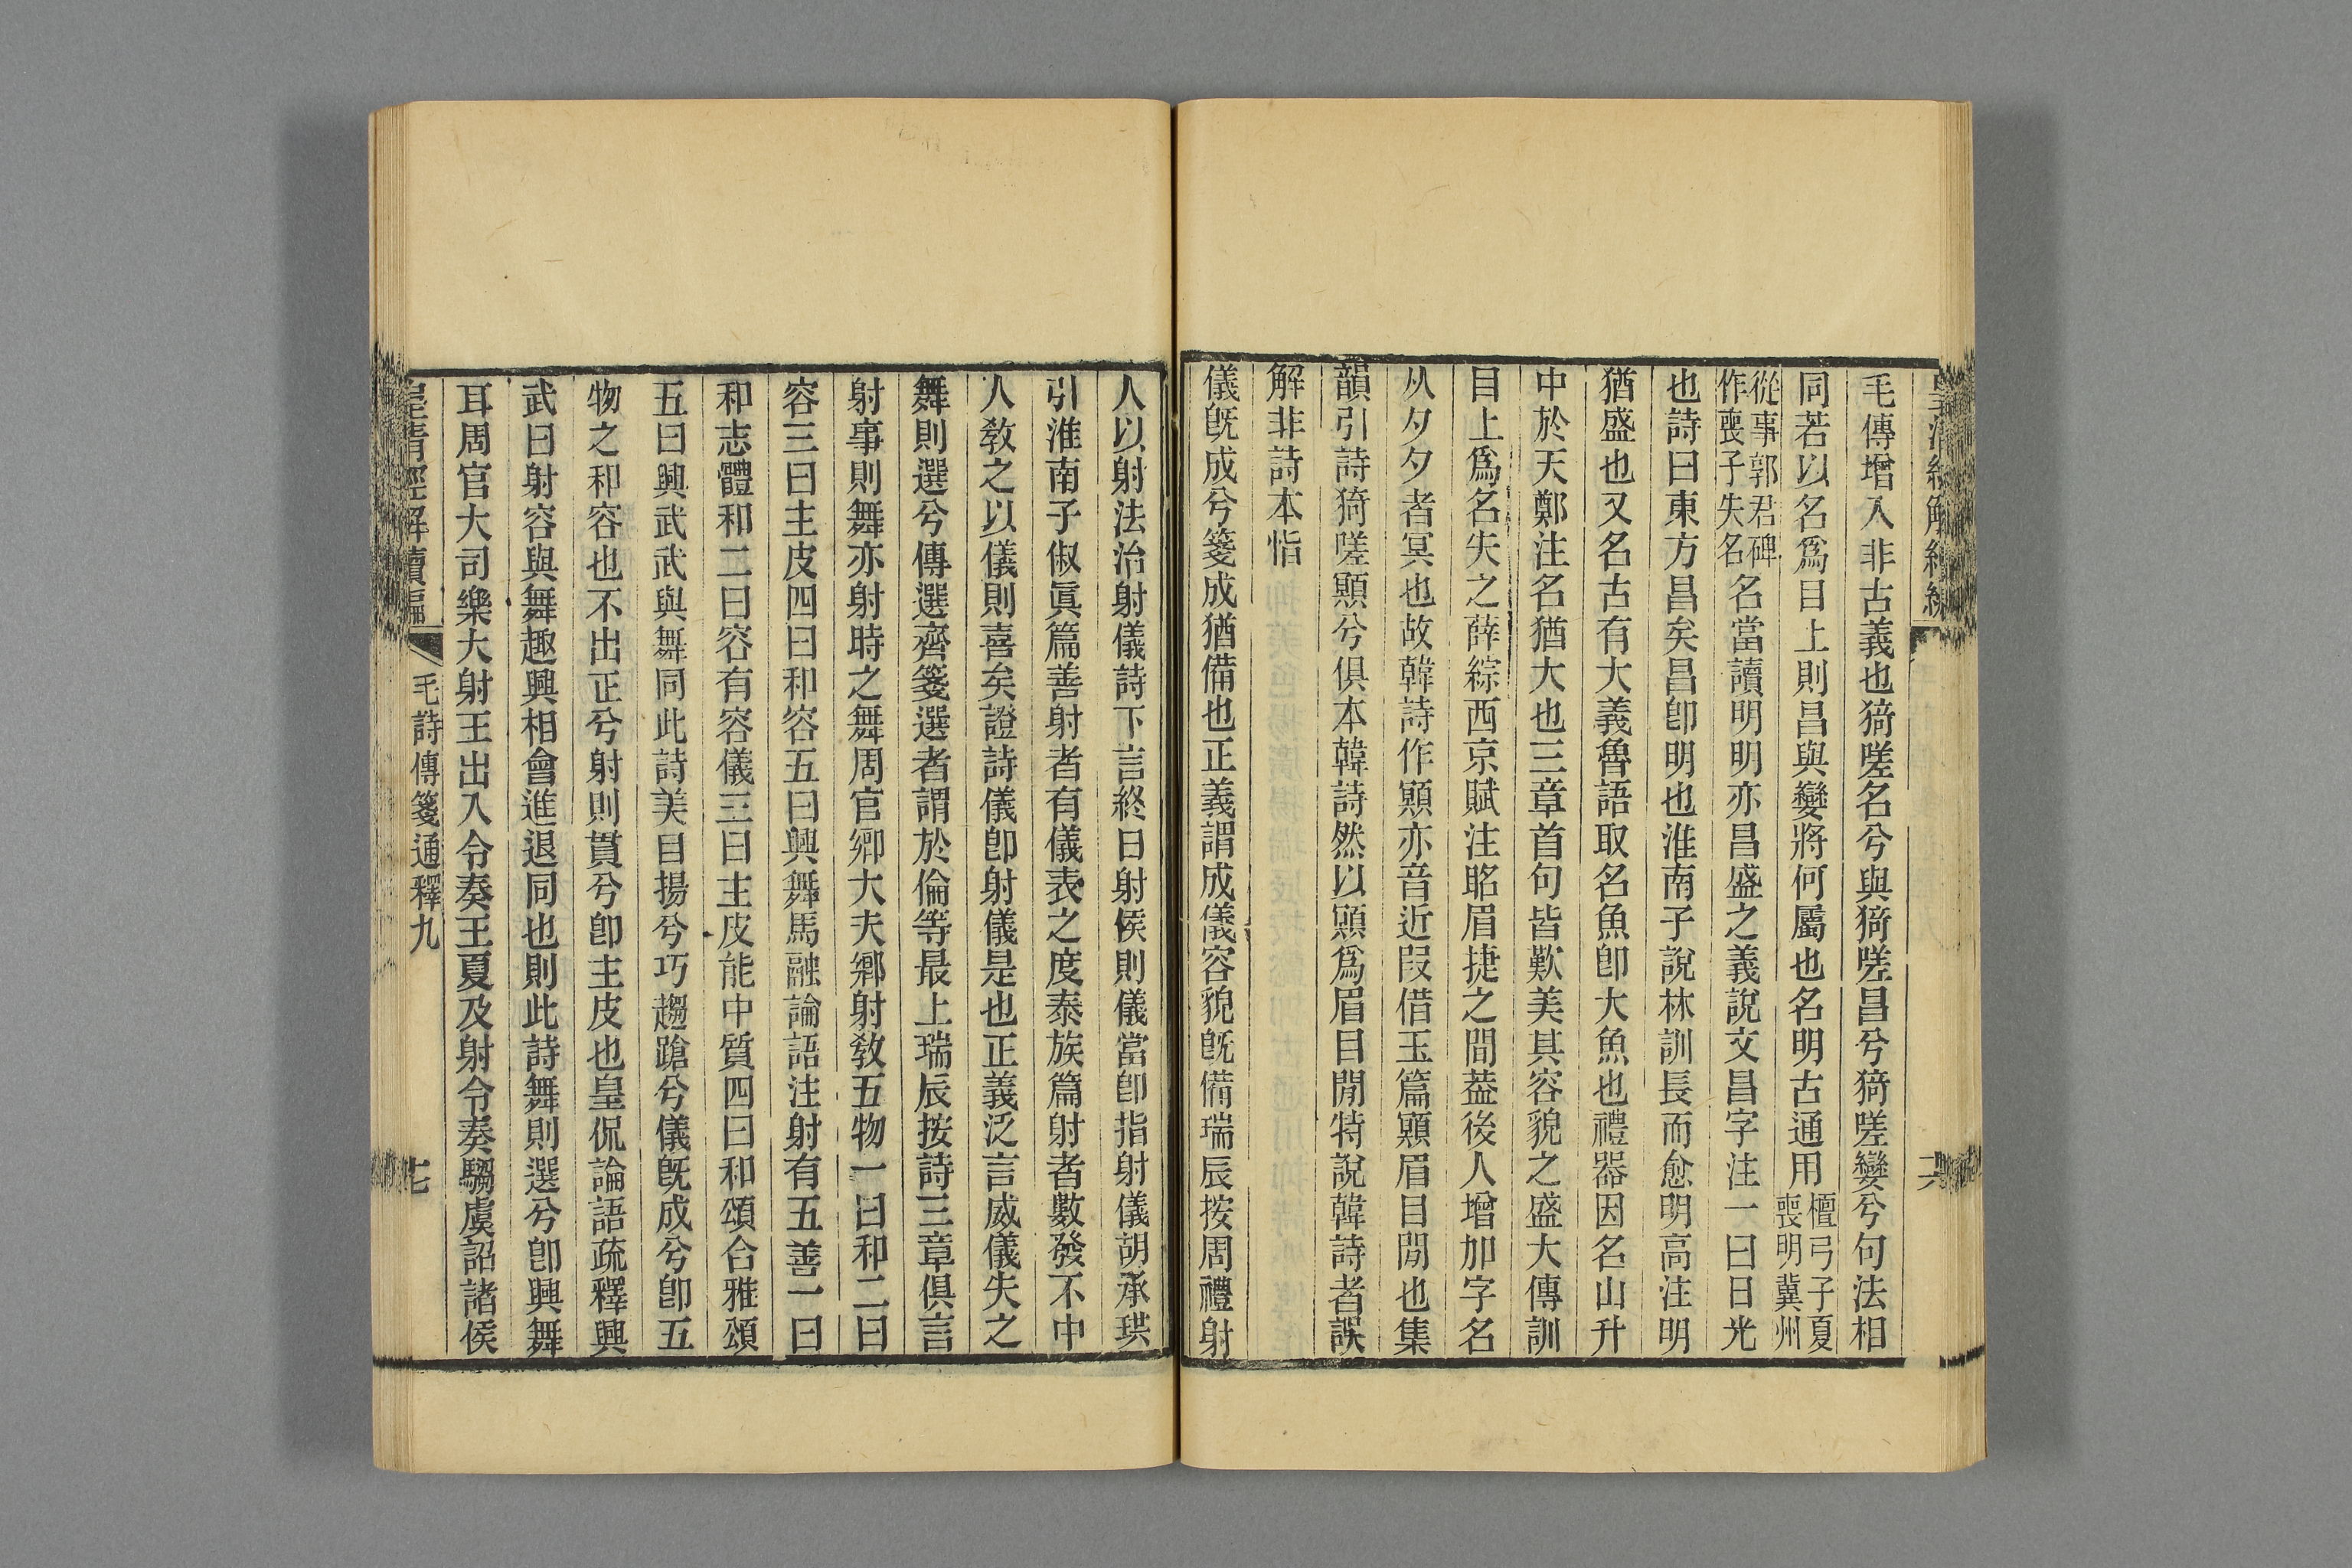 皇清經解續編
六
毛傳增入非古義也猗嗟名兮與猗嗟昌兮猗嗟孌兮句法相
同若以名爲目上則昌與孌將何屬也名明古通用檀弓子夏喪明冀州
從事郭君碑作喪子失名名當讀明明亦昌盛之義說文昌字注一曰日光
也詩曰東方昌矣昌卽明也淮南子說林訓長而愈明高注明
猶盛也又名古有大義魯語取名魚卽大魚也禮器因名山升
中於天鄭注名猶大也三章首句皆歎美其容貌之盛大傳訓
目上爲名失之薛綜西京賦注眳眉捷之間葢後人增加字名
从夕夕者冥也故韓詩作顠亦音近叚借玉篇顠眉目閒也集
韻引詩猗嗟顠兮俱本韓詩然以顠爲眉目閒特說韓詩者誤
解非詩本恉
儀旣成兮箋成猶備也正義謂成儀容貌旣備瑞辰按周禮射
人以射法治射儀詩下言終日射侯則儀當卽指射儀胡承珙
引淮南子俶眞篇善射者有儀表之度泰族篇射者數發不中
人敎之以儀則喜矣證詩儀卽射儀是也正義泛言威儀失之
舞則選兮傳選齊箋選者謂於倫等最上瑞辰按詩三章俱言
射事則舞亦射時之舞周官鄉大夫鄉射敎五物一曰和二曰
容三曰主皮四曰和容五曰興舞馬融論語注射有五善一曰
和志體和二曰容有容儀三曰主皮能中質四曰和頌合雅頌
五曰興武武與舞同此詩美目揚兮巧趨蹌兮儀旣成兮卽五
物之和容也不出正兮射則貫兮卽主皮也皇侃論語疏釋興
武曰射容與舞趣興相會進退同也則此詩舞則選兮卽興舞
耳周官大司樂大射王出入令奏王夏及射令奏騶虞詔諸侯
皇清經解續編
毛詩傳箋通釋九
七